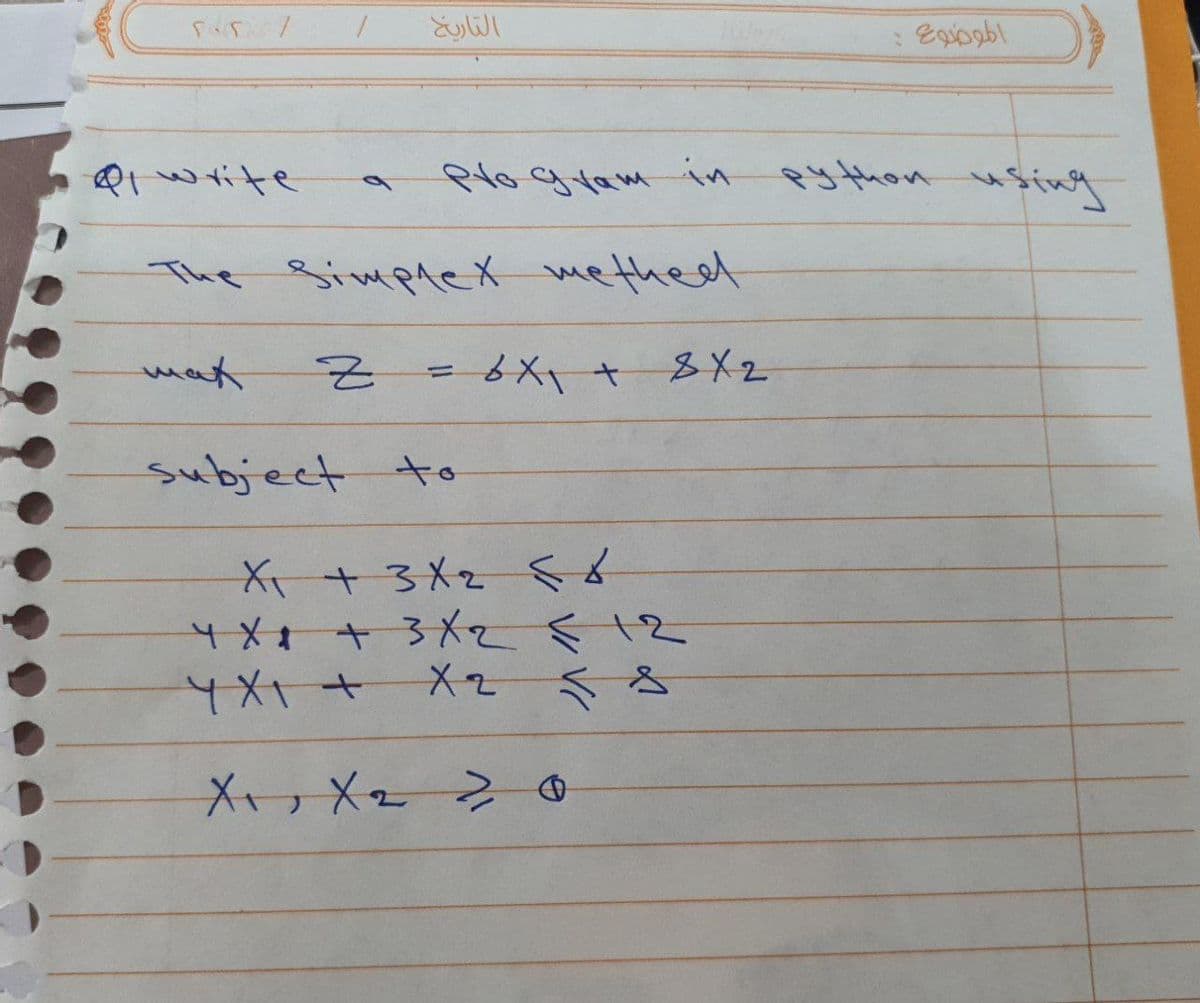 الموضوع : التاريخ / / ٢٠٢
Q1 write a program in python using
The Simplex method
max Z = 6X1 + 8X2
subject to
X1 + 3X2 ≤ 6
4X1 + 3X2 ≤ 12
4X1 + X2 ≤ 8
X1, X2 ≥ 0